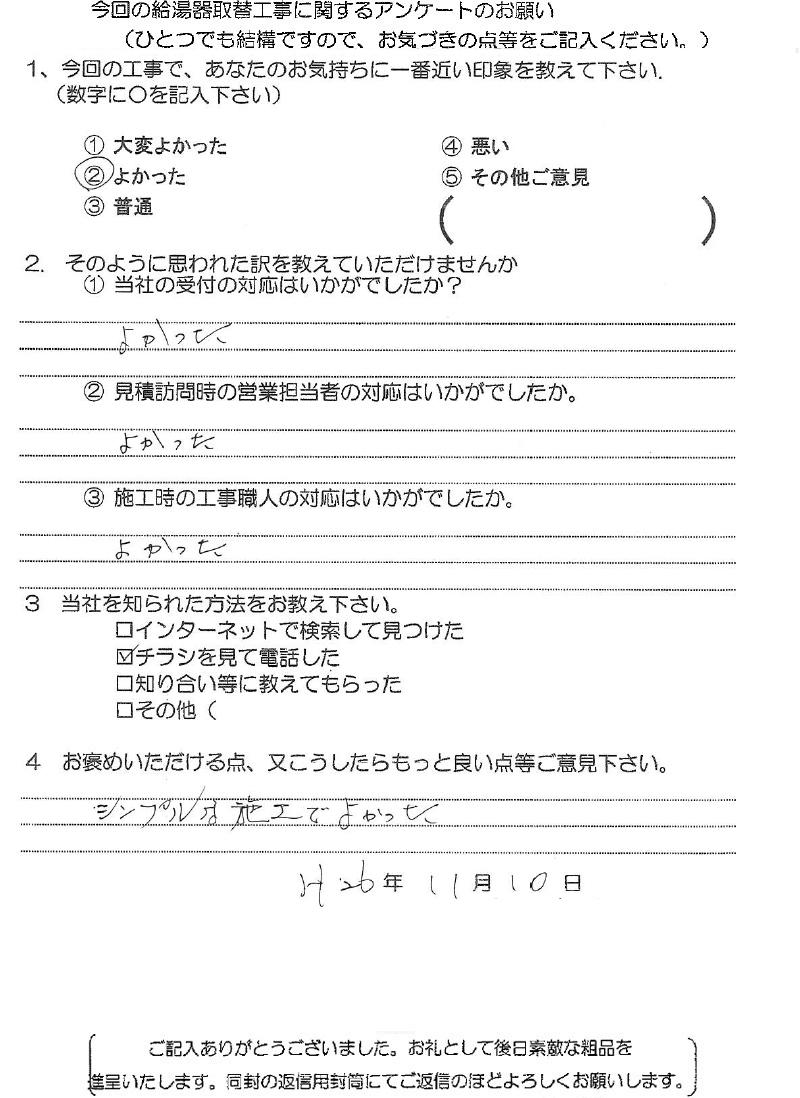 今回の給湯器取替工事に関するアンケートのお願い
（ひとつでも結構ですので、お気づきの点等をご記入ください。）
1、今回の工事で、あなたのお気持ちに一番近い印象を教えて下さい.
（数字に〇を記入下さい）
① 大変よかった
② よかった
③ 普通
④ 悪い
⑤ その他ご意見
（ ）
2. そのように思われた訳を教えていただけませんか
① 当社の受付の対応はいかがでしたか？
よかった
② 見積訪問時の営業担当者の対応はいかがでしたか。
よかった
③ 施工時の工事職人の対応はいかがでしたか。
よかった
3 当社を知られた方法をお教え下さい。
□インターネットで検索して見つけた
☑チラシを見て電話した
□知り合い等に教えてもらった
□その他（
4 お褒めいただける点、又こうしたらもっと良い点等ご意見下さい。
シンプルな施工でよかった
H26年 11月 10日
ご記入ありがとうございました。お礼として後日素敵な粗品を
進呈いたします。同封の返信用封筒にてご返信のほどよろしくお願いします。